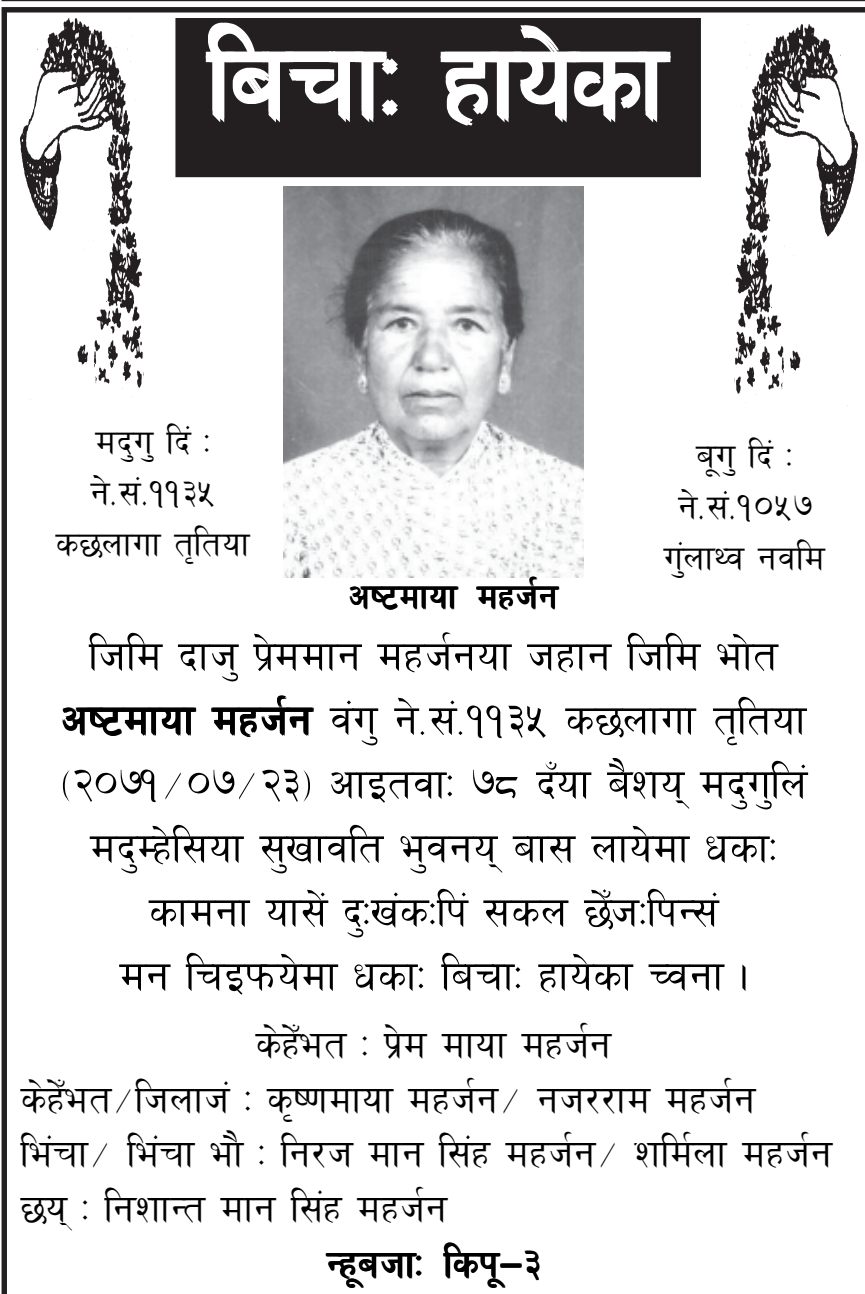 बिचाः हायेका
मदुगु दिं :
ने.सं.११३५
कछलागा तृतिया
बूगु दिं :
ने.सं.१०५७
गुंलाथ्व नवमि
अष्टमाया महर्जन
जिमि दाजु प्रेममान महर्जनया जहान जिमि भोत
अष्टमाया महर्जन वंगु ने.सं.११३५ कछलागा तृतिया
(२०७१/०७/२३) आइतवाः ७८ दँया बैशय् मदुगुलिं
मदुम्हेसिया सुखावति भुवनय् बास लायेमा धकाः
कामना यासें दुःखंकःपिं सकल छेँजःपिन्सं
मन चिइफयेमा धकाः बिचाः हायेका च्वना ।
केहेँभत : प्रेम माया महर्जन
केहेँभत/जिलाजं : कृष्णमाया महर्जन/ नजरराम महर्जन
भिंचा/ भिंचा भौ : निरज मान सिंह महर्जन/ शर्मिला महर्जन
छय् : निशान्त मान सिंह महर्जन
न्हूबजाः किपू–३